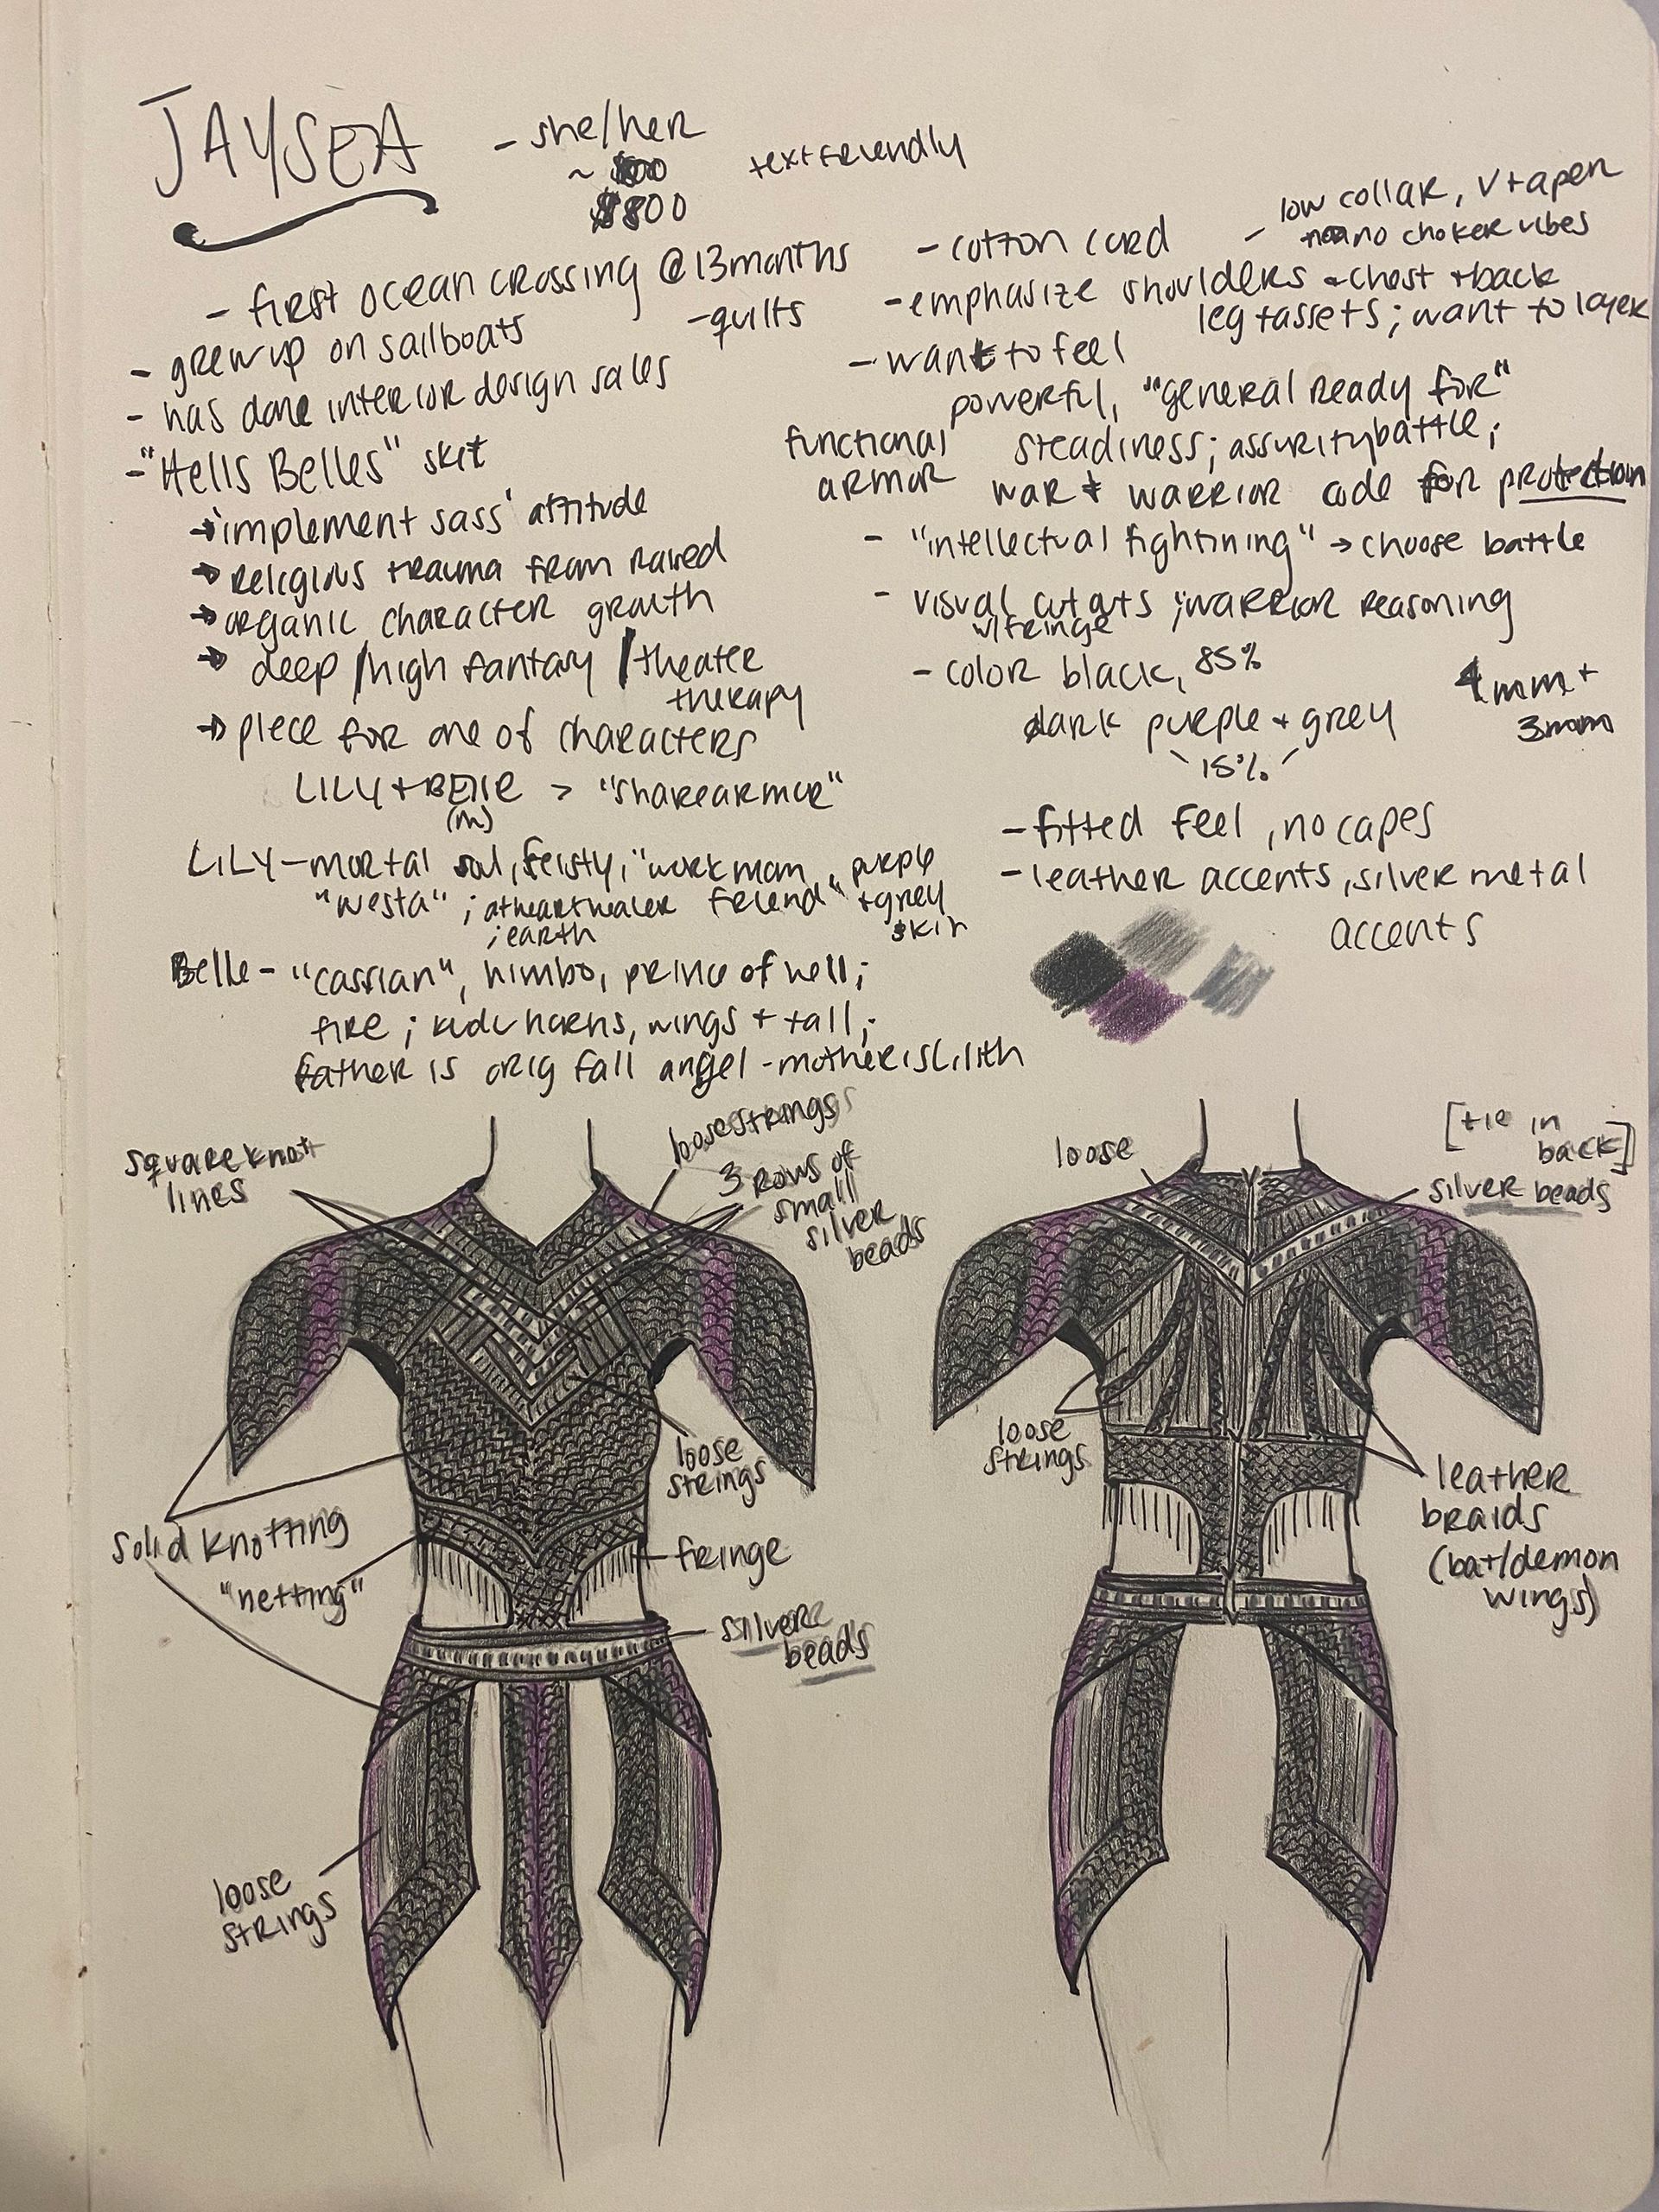 JAYSEA
- she/her
~
$800
text friendly
- first ocean crossing @ 13 months
- grew up on sailboats
- quilts
- has done interior design sales
- "Hells Belles" skit
→ 'implement sass' attitude
→ religious trauma from raised
→ organic character growth
→ deep/high fantasy / theater
therapy
→ piece for one of characters
LILY + BELLE > "share armor"
(m)
LILY - mortal soul, feisty, "work mom friend"
purple + grey skin
"westa"; at heart healer
; earth
Belle - "cassian", himbo, prince of hell;
fire; kudu horns, wings + tail;
father is orig fall angel - mother is Lilith
- cotton cord
- low collar, V + aper
no choker vibes
- emphasize shoulders + chest + back
leg tassets; want to layer
- want to feel
powerful, "general ready for"
battle;
steadiness; assurity
functional
armor
war + warrior code for protection
- "intellectual fightining" → choose battle
- visual cutouts ; warrior reasoning
w/ fringe
- color black, 85%
dark purple + grey
15%
4mm +
3mm
- fitted feel, no capes
- leather accents, silver metal
accents
square knott
lines
loose strings
3 rows of
small
silver
beads
solid knotting
"netting"
loose
strings
fringe
silver
beads
loose
strings
loose
[tie in
back]
silver beads
loose
strings
leather
braids
(bat/demon
wings)